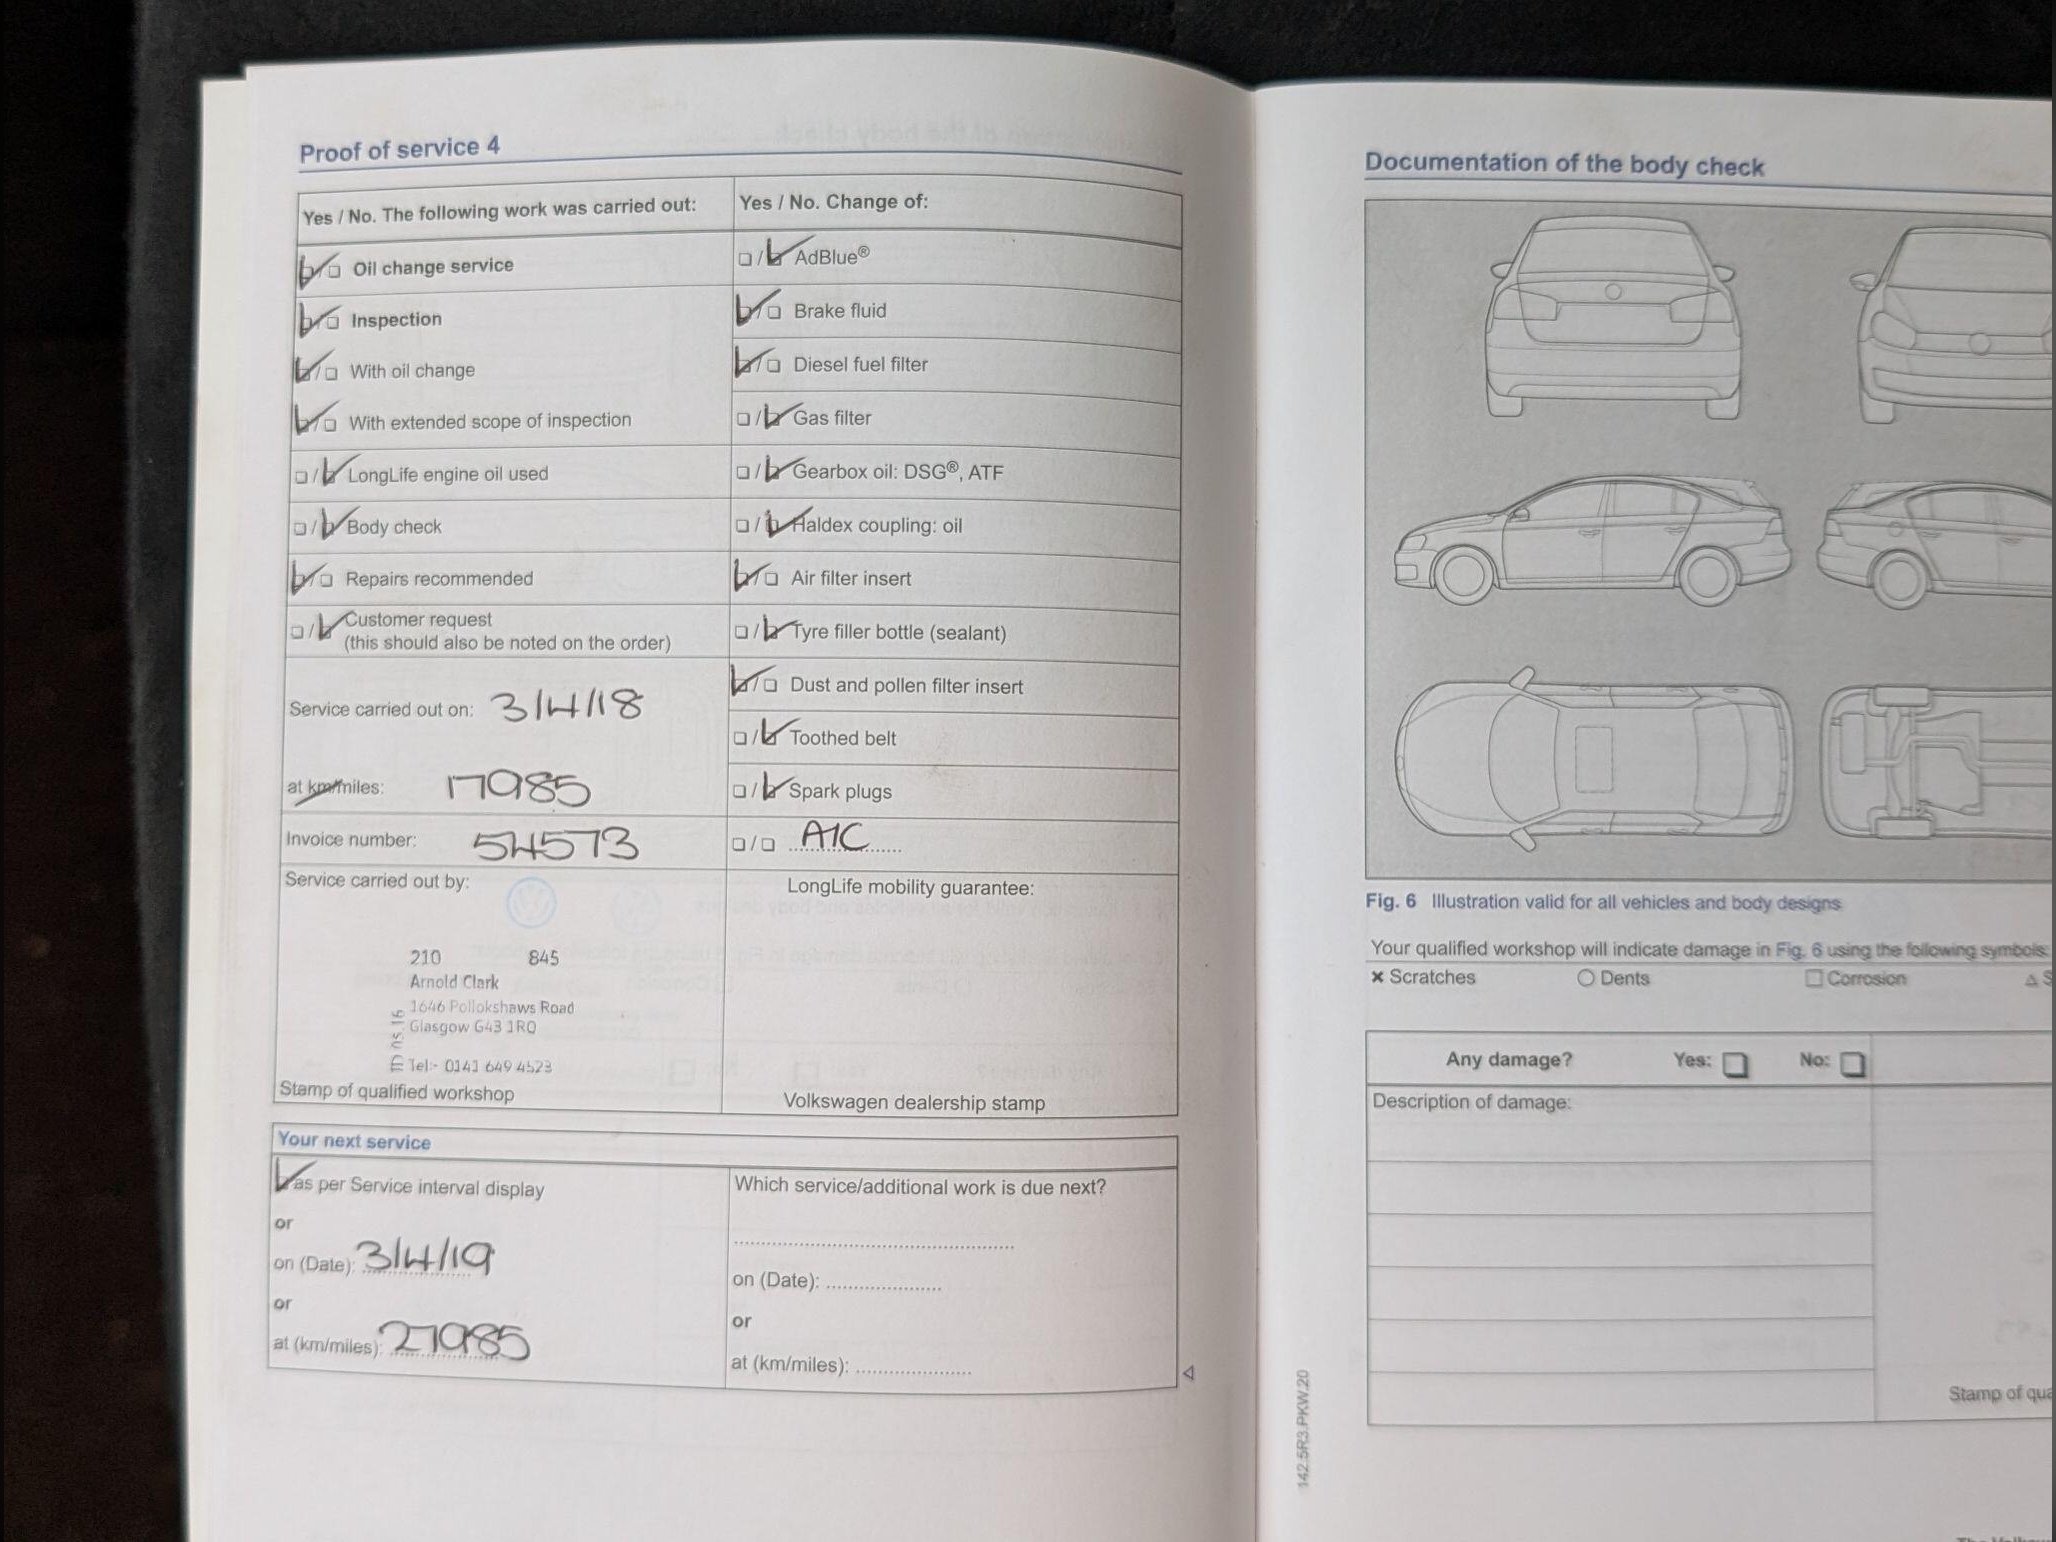 Proof of service 4
Yes / No. The following work was carried out:
Oil change service
Inspection
With oil change
With extended scope of inspection
LongLife engine oil used
Body check
Repairs recommended
Customer request
(this should also be noted on the order)
Service carried out on: 3/4/18
at km/miles: 17985
Invoice number: 54573
Service carried out by:
210 845
Arnold Clark
1646 Pollokshaws Road
Glasgow G43 1RQ
Tel:- 0141 649 4523
Stamp of qualified workshop
Yes / No. Change of:
AdBlue®
Brake fluid
Diesel fuel filter
Gas filter
Gearbox oil: DSG®, ATF
Haldex coupling: oil
Air filter insert
Tyre filler bottle (sealant)
Dust and pollen filter insert
Toothed belt
Spark plugs
A1C
LongLife mobility guarantee:
Volkswagen dealership stamp
Your next service
as per Service interval display
or
on (Date): 3/4/19
or
at (km/miles): 27985
Which service/additional work is due next?
on (Date):
or
at (km/miles):
142.5R3.PKW.20
Documentation of the body check
Fig. 6 Illustration valid for all vehicles and body designs
Your qualified workshop will indicate damage in Fig. 6 using the following symbols:
Scratches Dents Corrosion
Any damage? Yes: No:
Description of damage:
Stamp of